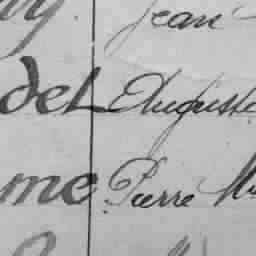 Jean
del Auguste
me Pierre